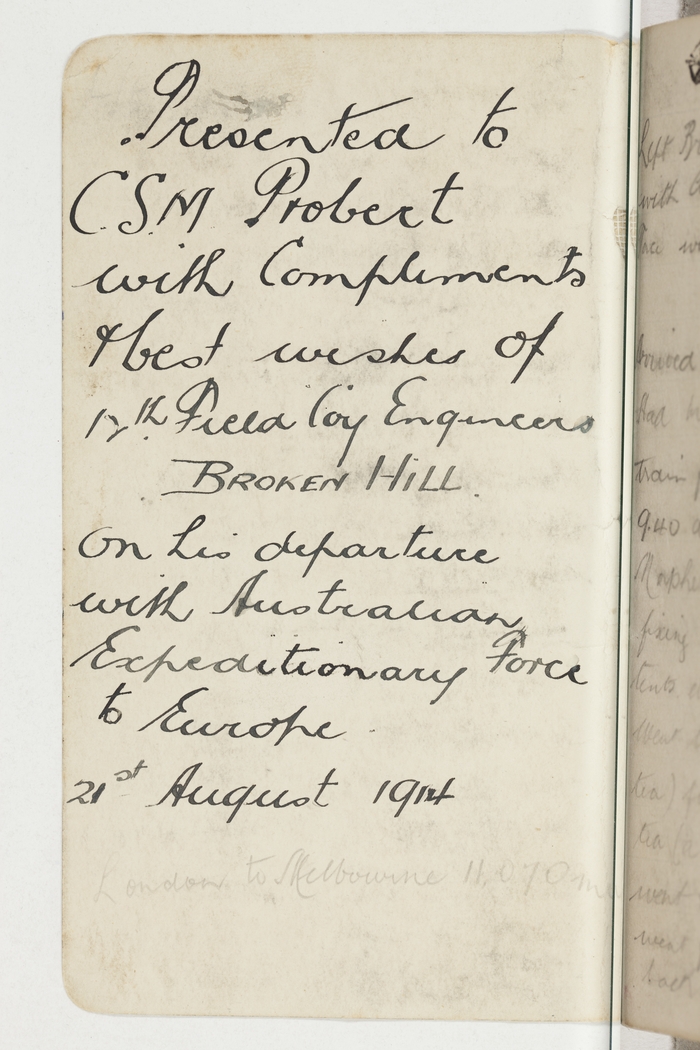 Presented to
C.S.M. Probert
with Compliments
& best wishes of
17th Field Coy Engineers
BROKEN HILL.
On his departure
with Australian
Expeditionary Force
to Europe.
21st August 1914
London to Melbourne 11,070
Left
with
train
9.40
fixing
tents
tea)
tea
went
went
back